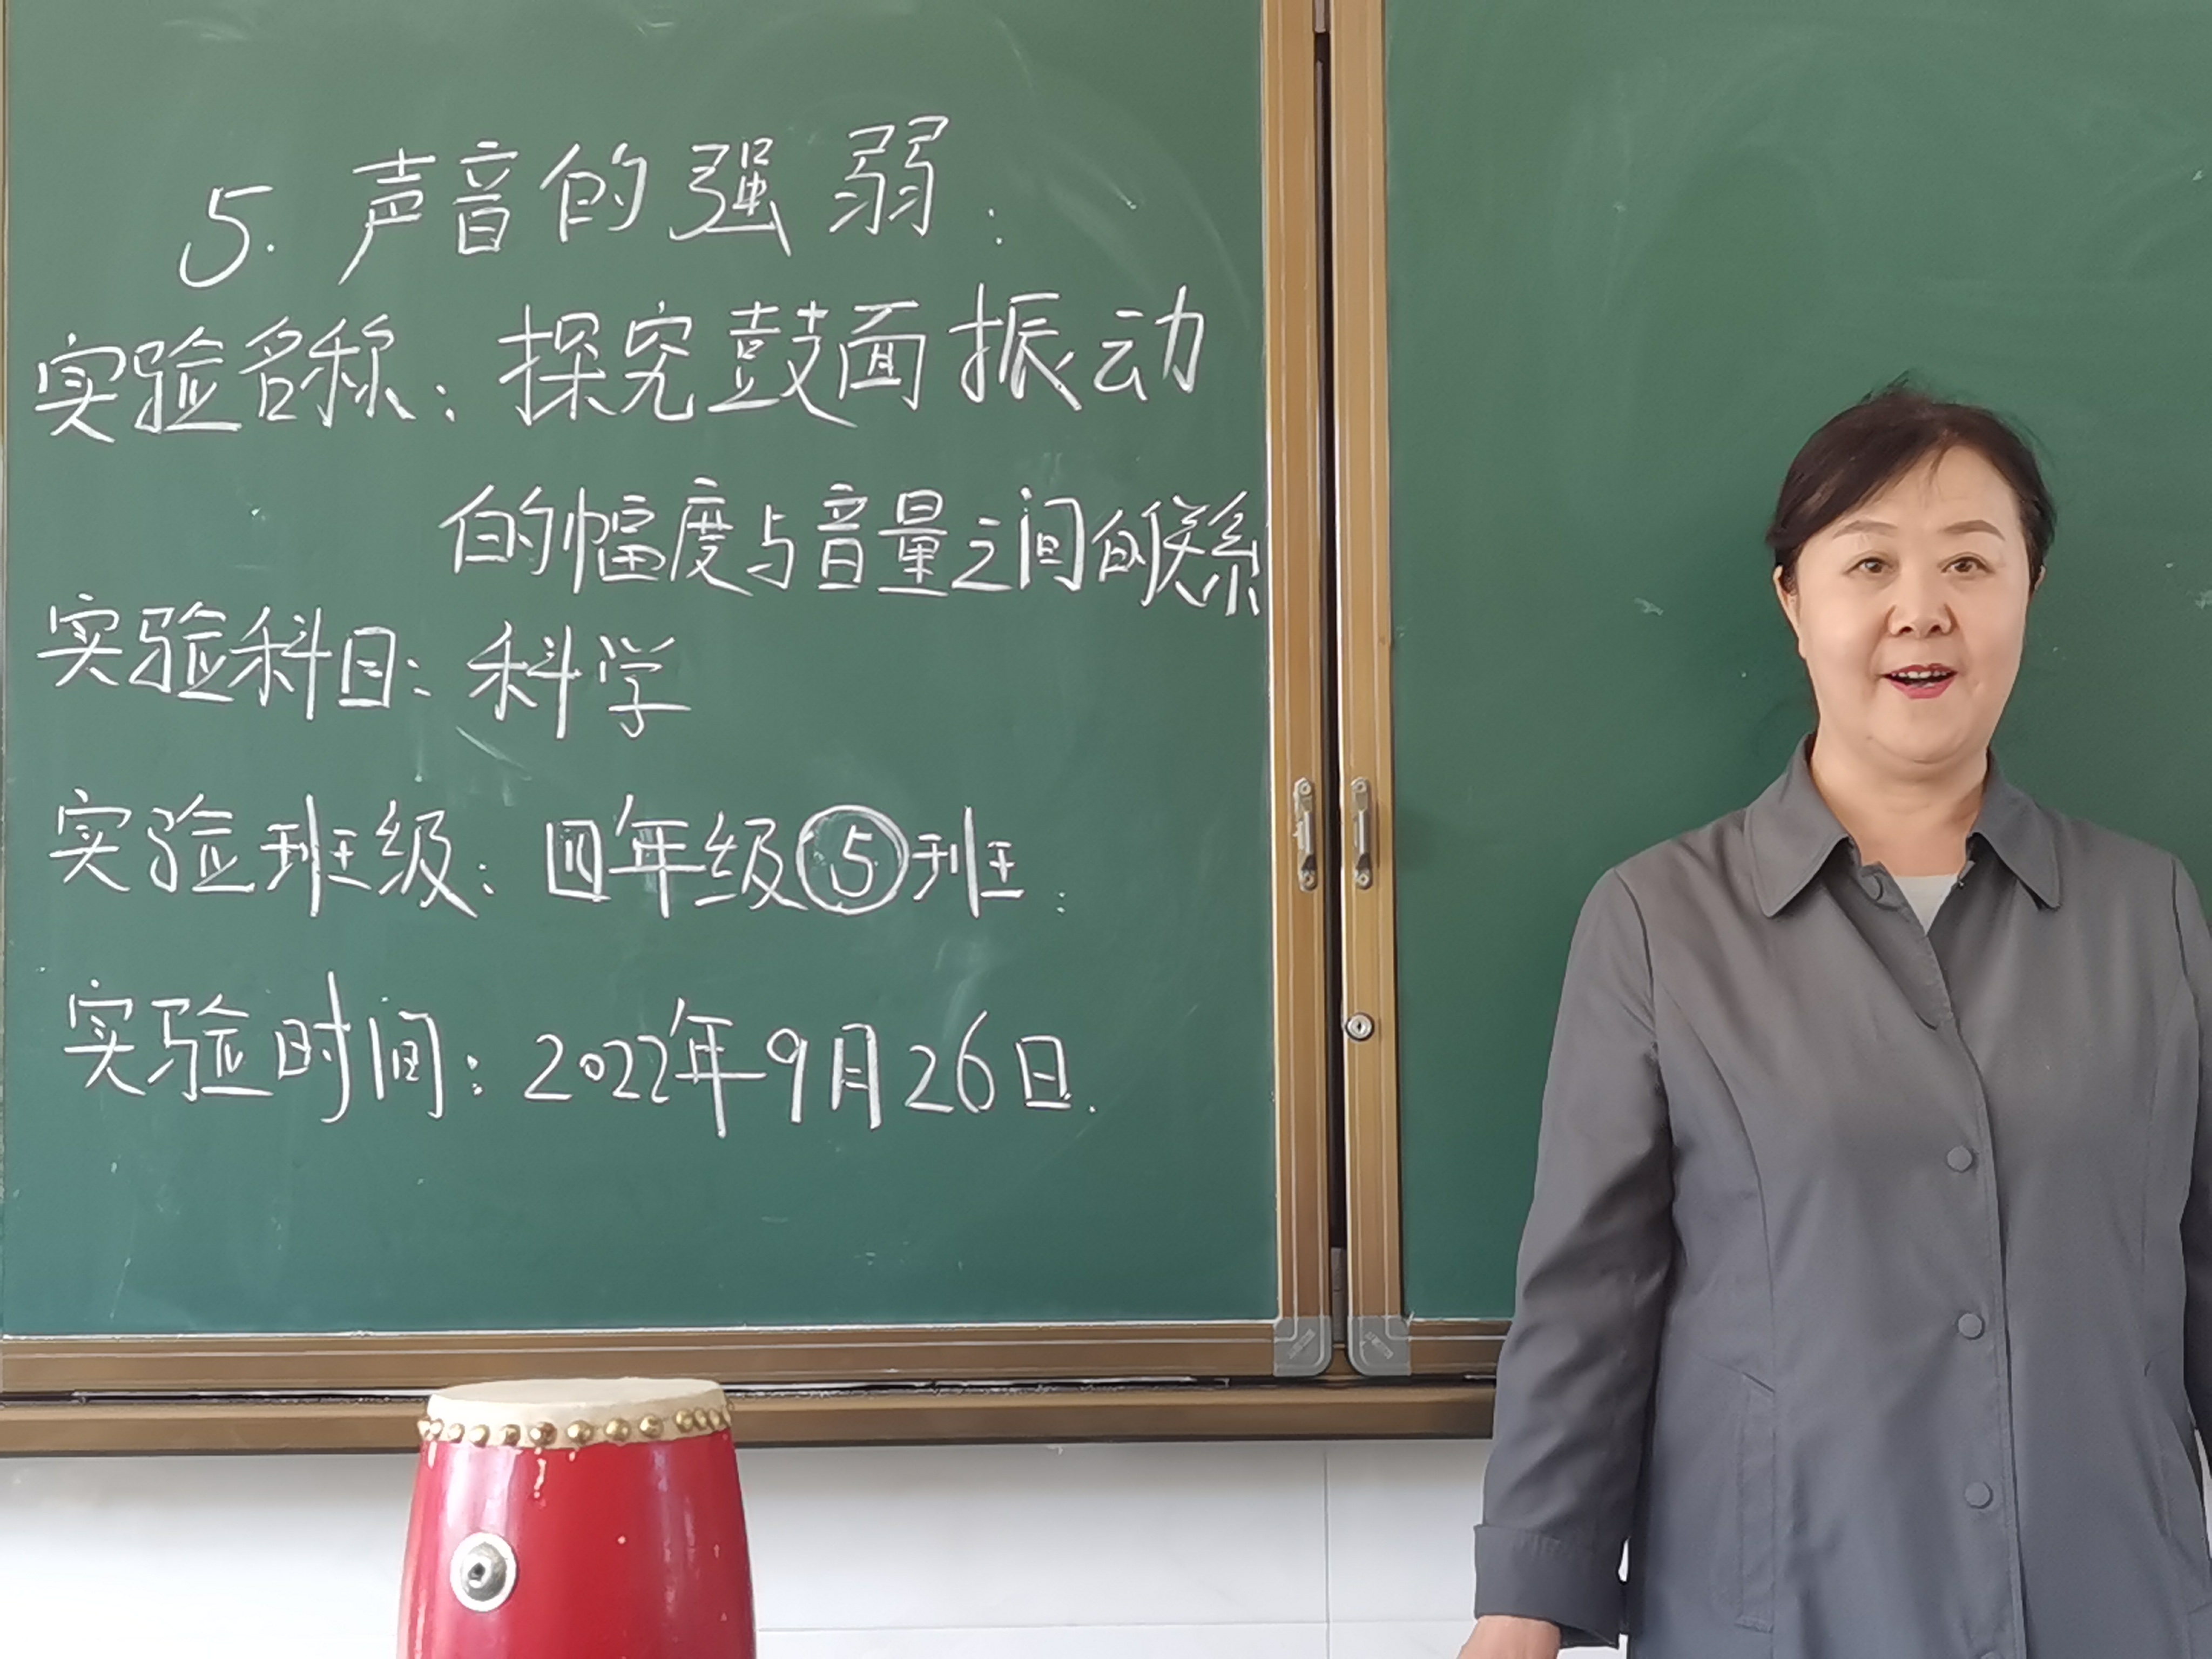 5. 声音的强弱.
实验名称: 探究鼓面振动
的幅度与音量之间的关系
实验科目: 科学
实验班级: 四年级⑤班.
实验时间: 2022年9月26日.